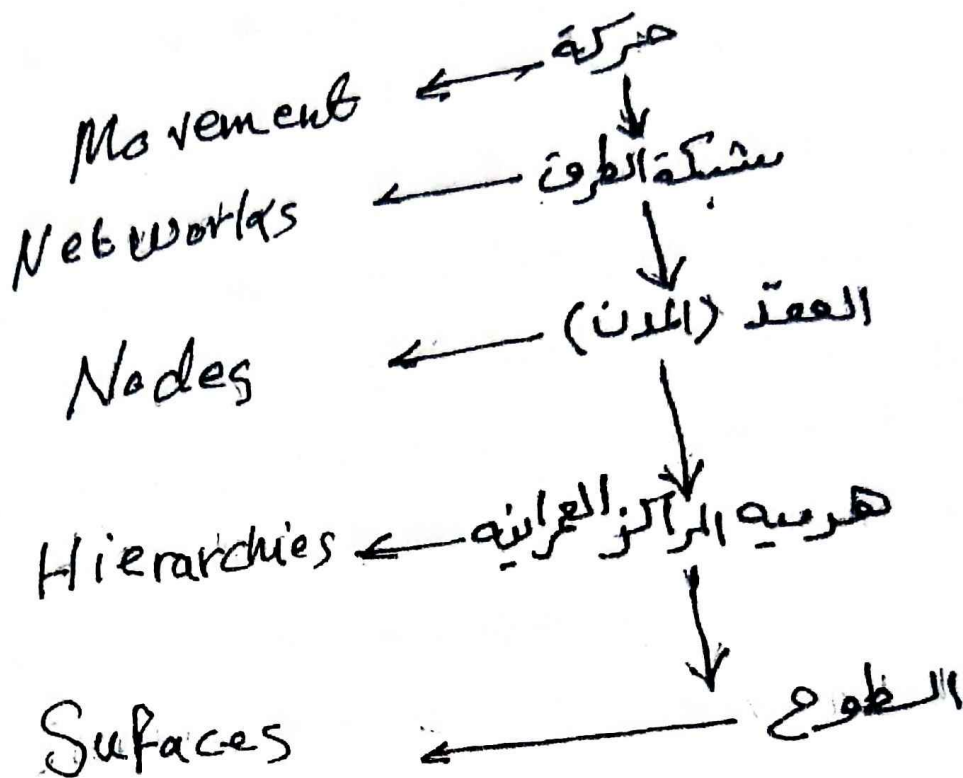 حركة ← Movement
شبكة الطرق ← Networks
العقد (المدن) ← Nodes
هرميه المراكز العمرانيه ← Hierarchies
السطوح ← Sufaces